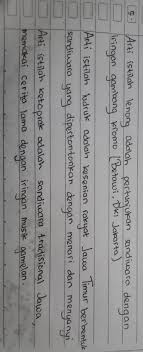 5. Arti istilah lenong adalah pertunjukan sandiwara dengan
iringan gambang kromo (Betawi, Dki Jakarta)
Arti istilah ludruk adalah kesenian rakyat Jawa Timur berbentuk
sandiwara yang dipertontonkan dengan menari dan menyanyi.
Arti istilah ketoprak adalah sandiwara tradisional Jawa,
memakai cerita lama dengan iringan musik gamelan.